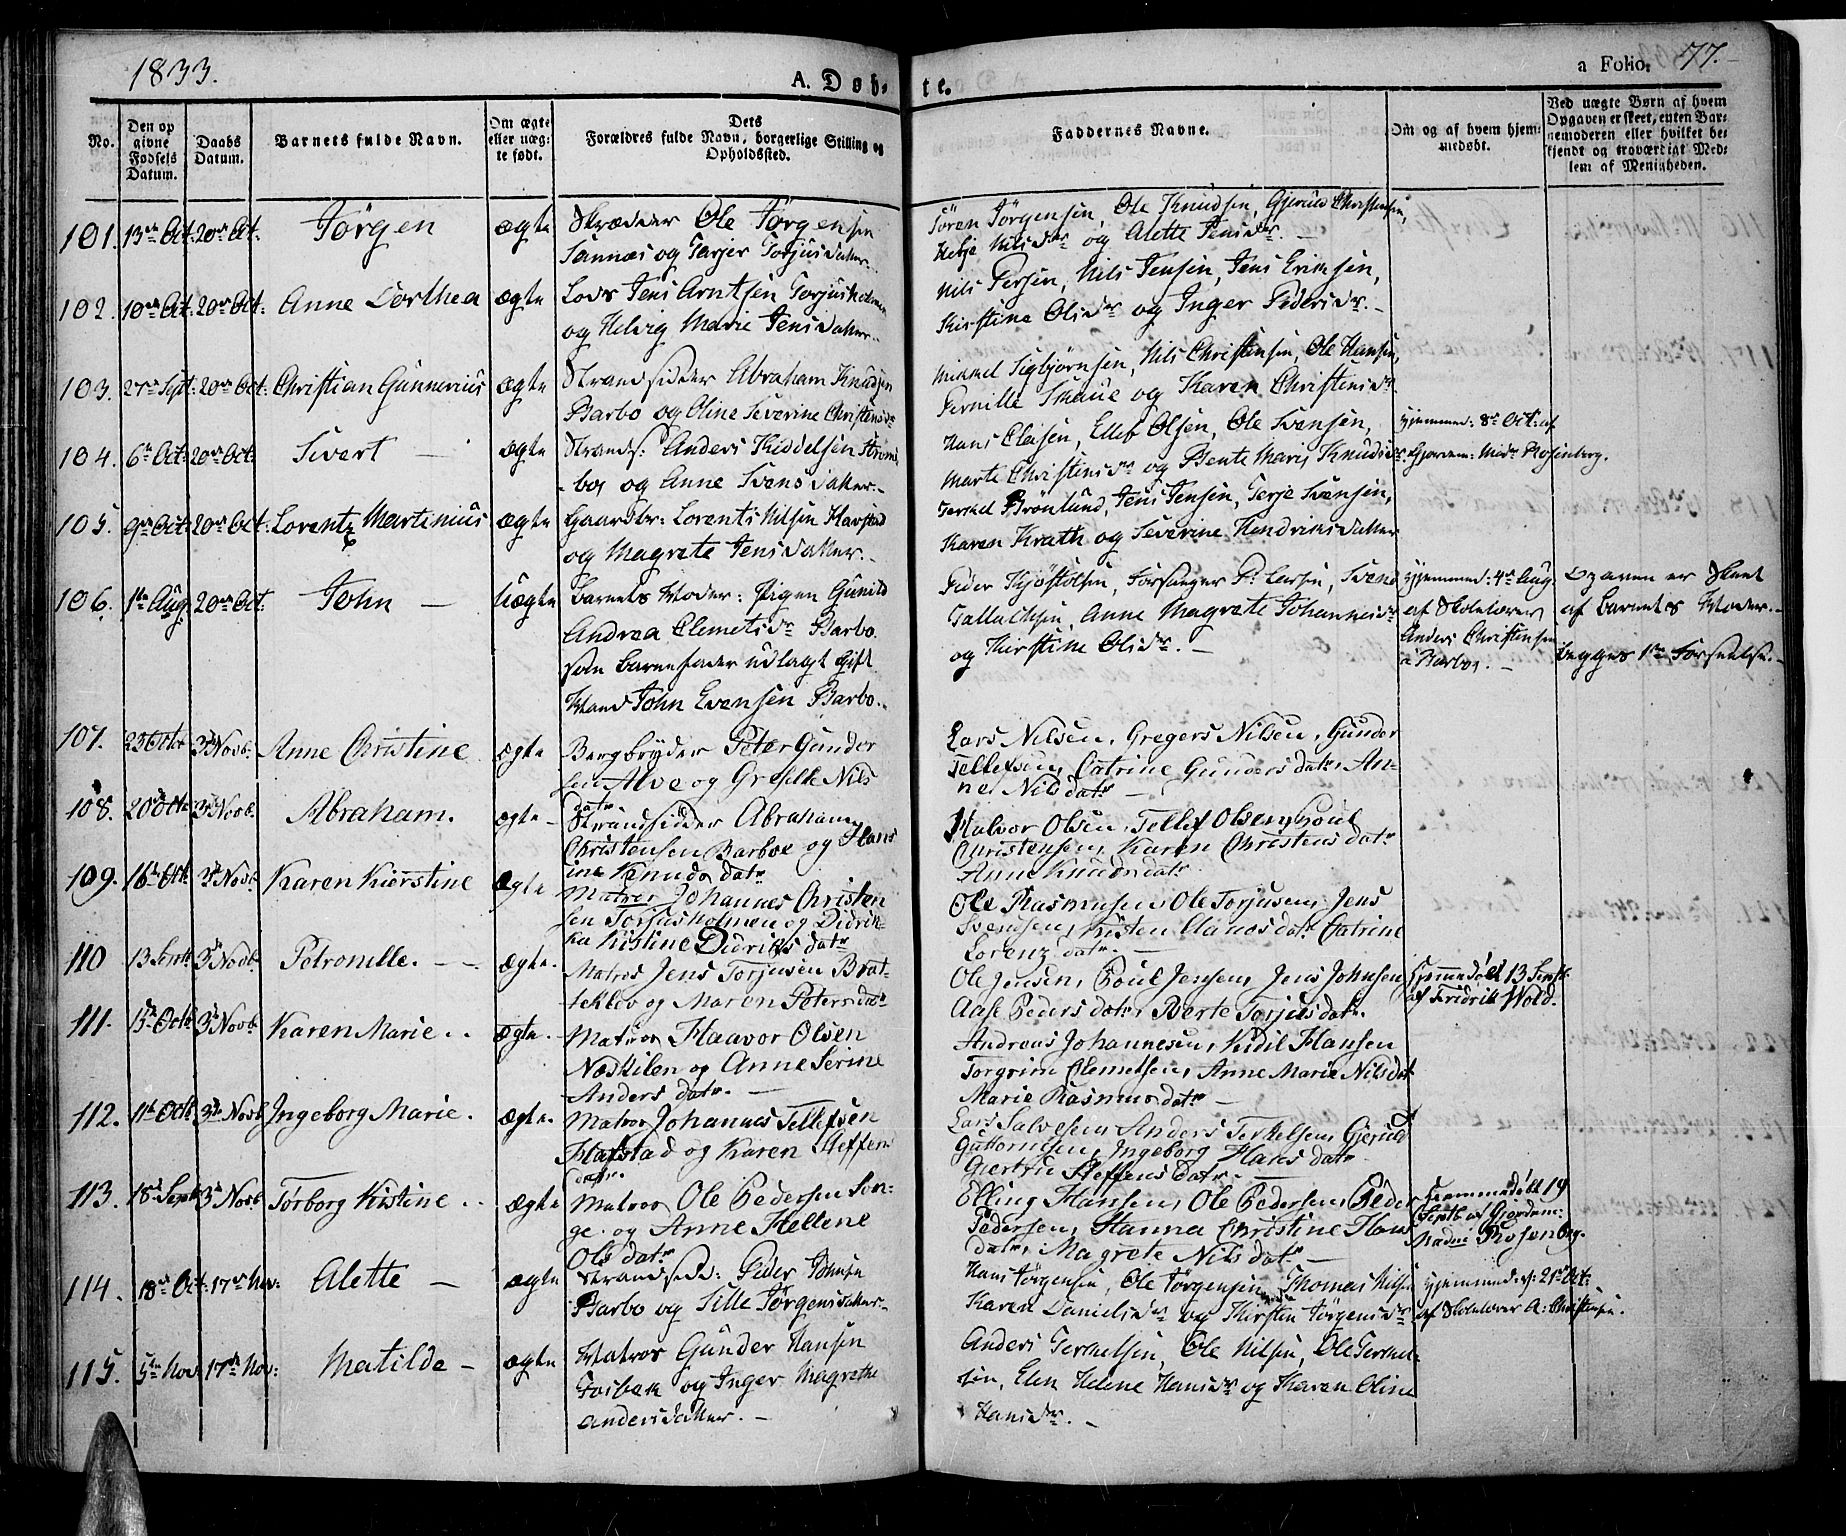 1833.
A. Døb-
te.
a Folio. 77.
No.
Den op
givne
Fødsels
Datum.
Daabs
Datum.
Barnets fulde Navn.
Om ægte
eller uæg-
te født.
Dets
Forældres fulde Navn, borgerlige Stilling og
Opholdssted.
Faddernes Navne.
Om og af hvem hjem-
medøbt.
Ved uægte Børn af hvem
Opgaven er skeet, enten Bar-
nemoderen eller hvilket be-
kjendt og troværdigt Med-
lem af Menigheden.
101. 13de Oct. 20de Oct. Jørgen ægte Skrædder Ole Jørgensen
Sannæs og Tarjer Torjusdatter.
Søren Jørgensen, Ole Knudsen, Gjeruld Christensen,
Nilsdr og Alette Jensdr. –
102. 10de Oct. 20de Oct: Anne Dorthea ægte Lods Jens Arntsen Torjusholmen
og Helvig Marie Jensdatter.
Nils Persen, Nils Jensen, Jens Eriksen,
Kirstine Olsdr og Inger Pedersdr. –
103. 27de Sept: 20de Oct: Christian Gunnerius ægte Strandsidder Abraham Knudsen
Barbo og Oline Severine Christensdr
Mikkel Sigbjørnsen, Nils Christensen, Ole Hansen,
Pernille Skaue og Karen Christensdr
104. 6te Oct: 20de Oct: Sivert – ægte Strands: Anders Kiddelsen Strøms
-boe og Anne Svensdatter. –
Hans Olsen, Ellef Olsen, Ole Svensen,
Marte Christensdr og Bente Marie Knudsdr.
Hjemmed: 8de Oct: af
Gjordem: Mde Rosenberg.
105. 9de Oct: 20de Oct: Lorentz Martinius ægte Gaardbr: Lorents Nilsen Havstad
og Magrete Jensdatter. –
Terkel Brönlund, Jens Jensen, Terje Svensen,
Karen Krath og Severine Hendriksdatter
106. 1ste Aug. 20de Oct. John – Uægte Barnets Moder: Pigen Gunild
Andrea Clemetsdr Barbo.
som Barnefader udlagt Gift
Mand John Evensen Barbo.
Peder Kjøstolsen, Forsanger P. Larsen, Svend
Tallaksen, Anne Magrete Johannesdr
og Kirstine Olsdr. –
Hjemmed: 4de Aug
af Skolelærer
Anders Christensen
a Barbo. –
Opgaven er skeet
af Barnets Moder. –
begges 1ste Forseelse. –
107. 23 Octbr 3de Novb: Anne Christine ægte Bergbryder Peter Gunder
sen Alve og Grethe Nils
datr.
Lars Nilsen, Gregers Nilsen, Gunder
Tellefsen, Catrine Gundersdatr, An-
ne Nilsdatr –
108. 20de Octb 3de Novb. Abraham. ægte – Strandsidder Abraham
Christensen Barboe og Hans
ine Knudsdatr
Halvor Olsen, Tellef Olsen, Poul
Christensen, Karen Christensdatr
Anne Knudsdatr.
109. 16de Octb 3de Novb. Karen Kierstine Ægte Matros Johannes Christen
sen Torjusholmen og Didrik-
ka Kistine Didriksdatr
Ole Rasmussen, Ole Torjusen, Jens
Svensen, Kisten Hansdatr Catrine
Lorenzdatr. –
110 13 Septb 3de Novb. Petronille. – – ægte. Matros Jens Torjusen Brat-
teklev og Maren Petersdatr
Ole Jensen, Poul Jensen, Jens Johnsen
Aase Pedersdatr, Berte Torjusdatr.
Hjemmedøbt 13 Septb:
af Fridrik Wold.
111. 15de Octb 3de Novb. Karen Marie . . Ægte. Matros Haavor Olsen
Nedkilen og Anne Serine
Andersdatr. –
Andreas Johannesen, Kidil Hansen
Torgrim Clemetsen, Anne Marie Nilsdat
Marie Rasmusdatr –
112. 11te Octb 3de Novb Ingeborg Marie. Ægte. Matros Johannes Tellefsen
Hafstad og Karen Steffens
datr.
Lars Salvesen, Anders Terkelsen, Gjeruld
Guttormsen, Ingeborg Hansdatr
Giertru Steffensdatr. –
113. 18de Septb 3de Novb Torborg Kistine . . Ægte Matros Ole Pedersen Son-
ge. og Anne Hellene
Olsdatr
Elling Hansen, Ole Pedersen, Peder
Pedersen, Hanna Christine Hans
datr, Magrete Nilsdatr –
Hjemmedøbt 19
Septb af Gjordem:
Madme Rosenberg.
114. 18de Oct: 17de Nov: Alette – Ægte Strandsidd: Peder Johnsen
Barbo og Sille Jørgensdatter.
Hans Jørgensen, Ole Jørgensen, Thomas Nilsen
Karen Danielsdr og Kirsten Jørgensdr
Hjemmed: 21de Oct:
af Skolelærer A: Christensen.
115. 5te Nov: 17de Nov: Matilde – Ægte Matros Gunder Hansen
Torbæk og Inger Magrethe
Andersdatter. –
Anders Terkelsen, Ole Nilsen, Ole Terkel-
sen, Elen Helene Hansdr og Karen Oline
Hansdr. –